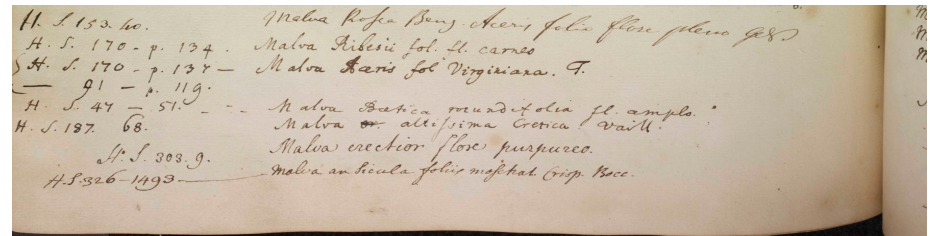 H. S. 153. 40. Malva Rosea Beng. Aceris folio flore pleno
H. S. 170 - p. 134. Malva Ribesii fol. fl. carneo
H. S. 170 - p. 137 — Malva Aceris fol Virginiana. T.
— 91 — p. 119.
H. S. 47 — 51. - - Malva Bætica rotundifolia fl. amplo.
H. S. 187. 68. Malva altissima Cretica. Vaill.
H. S. 303. 9. Malva erectior flore purpureo.
H. S. 326 - 1493 — Malva an Sicula foliis moschat. Crisp. Bocc.